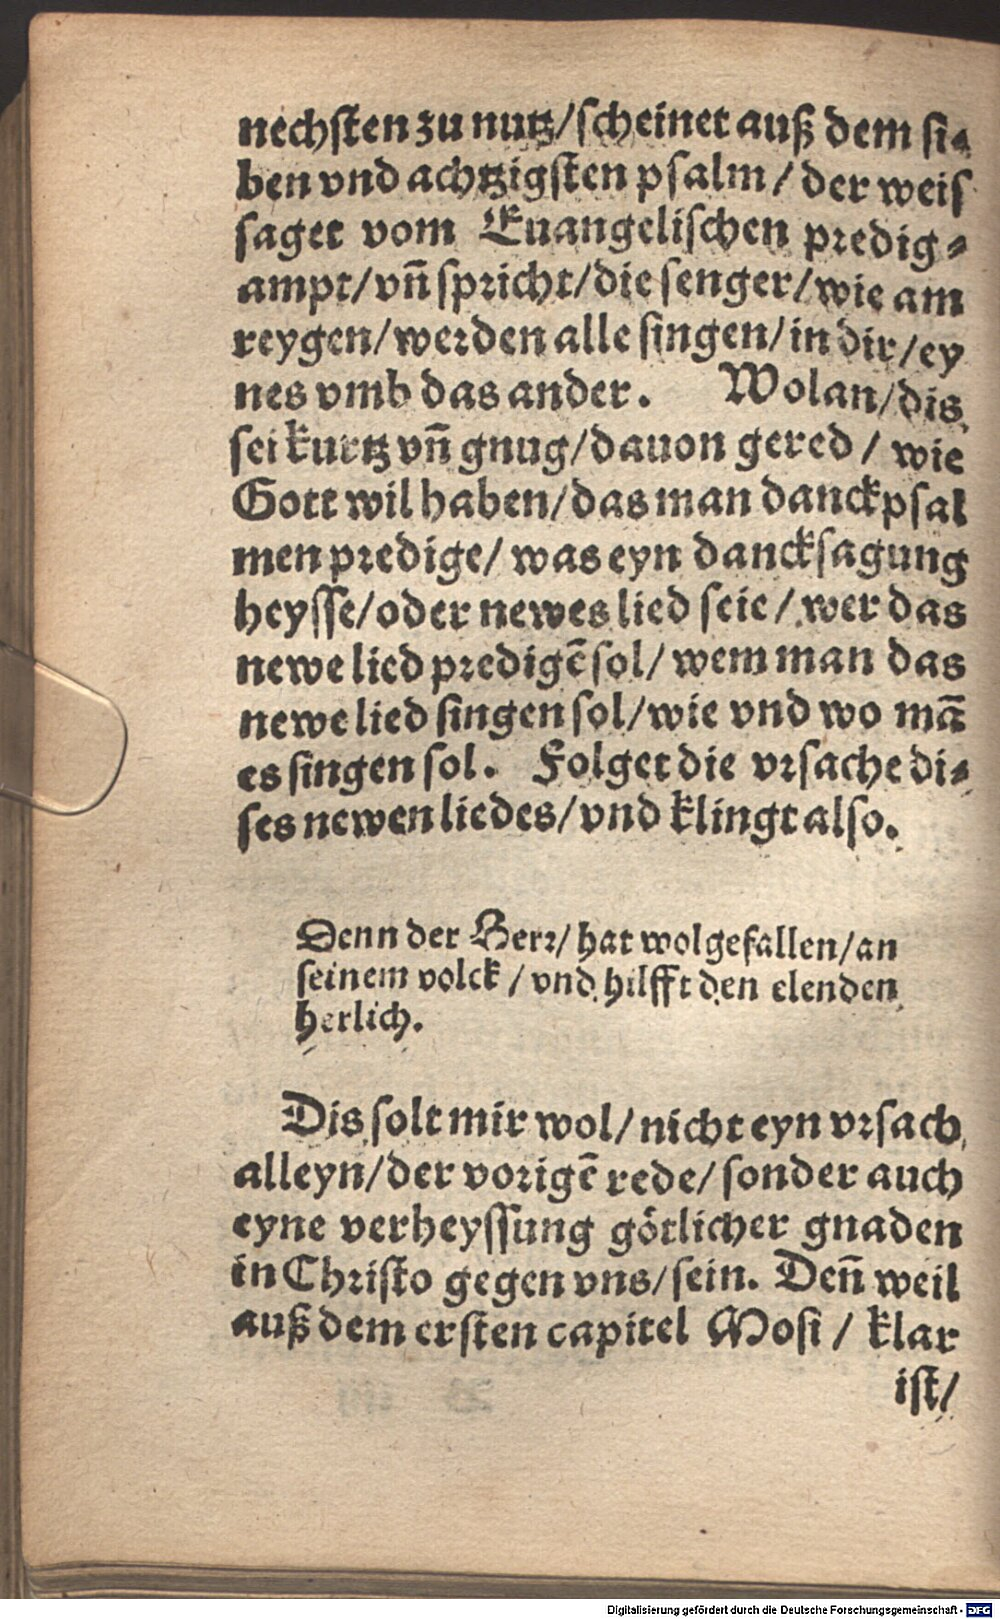 nechsten zu nutz/scheinet auß dem si-
ben vnd achtzigsten psalm/ der weis
saget vom Euangelischen predig-
ampt/vñ spricht/die senger/wie am
reygen/werden alle singen/in dir/ey
nes vmb das ander. Wolan/dis
sei kurtz vñ gnug/dauon gered/ wie
Gott wil haben/das man danckpsal
men predige/ was eyn dancksagung
heysse/oder newes lied seie/ wer das
newe lied predigẽ sol/ wem man das
newe lied singen sol/wie vnd wo mã
es singen sol. Folget die vrsache di-
ses newen liedes/vnd klingt also.
Denn der Herr/ hat wolgefallen/an
seinem volck/ vnd hilfft den elenden
herlich.
Dis solt mir wol/nicht eyn vrsach
alleyn/der vorigẽ rede/sonder auch
eyne verheyssung götlicher gnaden
in Christo gegen vns/sein. Deñ weil
auß dem ersten capitel Mosi/ klar
ist/
Digitalisierung gefördert durch die Deutsche Forschungsgemeinschaft - DFG